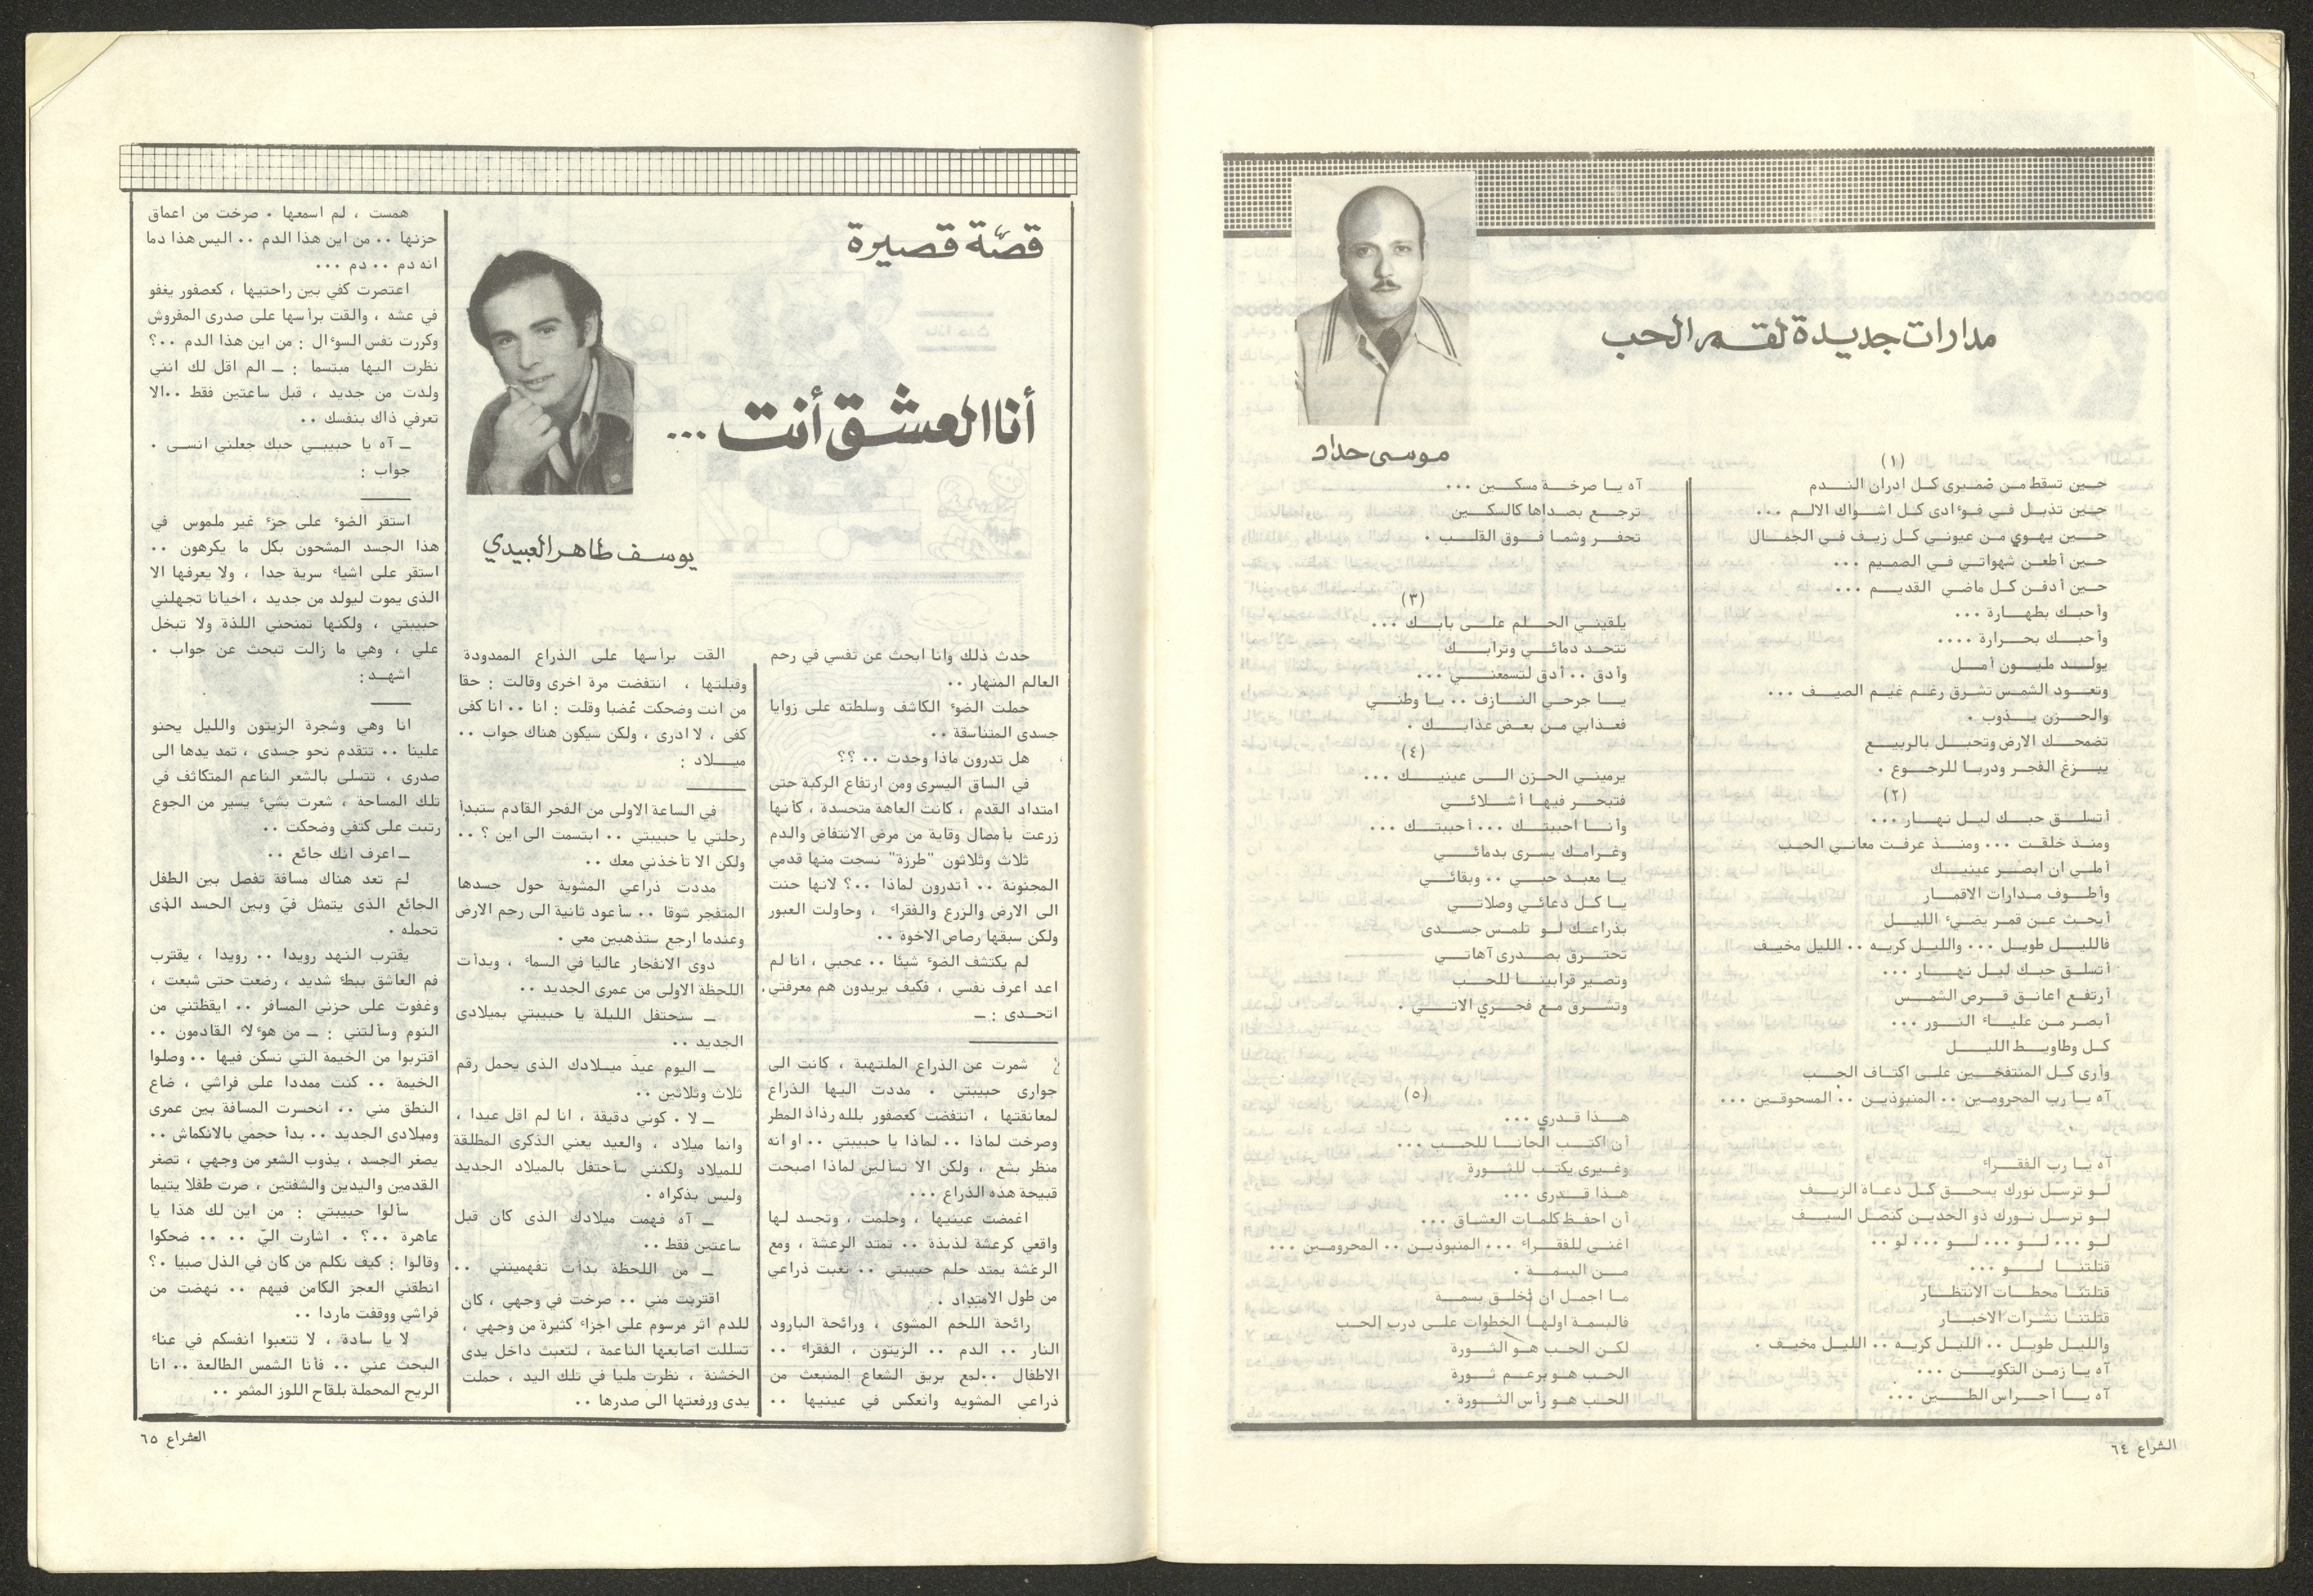 مدارات جديدة لقمر الحب
موسى حداد
(١)
حين تسقط من ضميرى كل ادران الندم
حين تذبل في فوٴادى كل اشواك الالم ...
حين يهوي من عيوني كل زيف في الجمال
حين أطعن شهواتي في الصميم ...
حين أدفن كل ماضي القديم ...
وأحبك بطهارة ...
وأحبك بحرارة ....
يولد مليون أمل
وتعود الشمس تشرق رغم غيم الصيف ...
والحزن يذوب .
تضمحك الارض وتحبل بالربيع
يبزغ الفجر ودربا للرجوع .
(٢)
أتسلق حبك ليل نهار ...
ومنذ خلقت ... ومنذ عرفت معاني الحب
أملي ان ابصر عينيك
وأطوف مدارات الاقمار
أبحث عن قمر يضيء الليل
فالليل طويل ... والليل كريه .. الليل مخيف
أتسلق حبك ليل نهار ...
أرتفع اعانق قرص الشمس
أبصر من علياء النور ...
كل وطاويط الليل
وأرى كل المنتفخين على اكتاف الحب
آه يا رب المحرومين .. المنبوذين .. المسحوقين ...
آه يا رب الفقراء
لو ترسل نورك يسحق كل دعاة الزيف
لو ترسل نورك ذو الحدين كنصل السيف
لو ... لو ... لو ... لو ..
قتلتنا لو ...
قتلتنا محطات الانتظار
قتلتنا نشرات الاخبار
والليل طويل .. الليل كريه .. الليل مخيف .
آه يا زمن التكوين ...
آه يا أجراس الطين ...
آه يا صرخة مسكين ...
ترجع بصداها كالسكين
تحفر وشما فوق القلب .
(٣)
يلقيني الحلم على بابك ...
تتحد دمائي وترابك
وأدق .. أدق لتسمعني ...
يا جرحي النازف .. يا وطني
فعذابي من بعض عذابك .
(٤)
يرميني الحزن الى عينيك ...
فتبحر فيها أشلائي
وأنا احببتك ... أحببتك ...
وغرامك يسرى بدمائي
يا معبد حبي .. وبقائي
يا كل دعائي وصلاتي
بذراعك لو تلمس جسدى
تحترق بصدرى آهاتي
وتصير قرابينا للحب
وتشرق مع فجري الاتي .
(٥)
هذا قدري ...
أن اكتب الحانا للحب ...
وغيرى يكتب للثورة
هذا قدرى ...
أن احفظ كلمات العشاق ...
اغني للفقراء ... المنبوذين .. المحرومين ...
من البسمة .
ما اجمل ان تخلق بسمة
فالبسمة اولها الخطوات على درب الحب
لكن الحب هو الثورة
الحب هو برعم ثورة
الحب هو رأس الثورة .
الشراع ٦٤
قصّة قصيرة
أنا العشق أنت ...
يوسف طاهر العبيدي
حدث ذلك وانا ابحث عن نفسي في رحم
العالم المنهار ..
حملت الضوٴ الكاشف وسلطته على زوايا
جسدى المتناسقة ..
هل تدرون ماذا وجدت .. ؟؟
في الساق اليسرى ومن ارتفاع الركبة حتى
امتداد القدم ، كانت العاهة متجسدة ، كأنها
زرعت بأمصال وقاية من مرض الانتفاض والدم
ثلاث وثلاثون "طرزة" نسجت منها قدمي
المجنونة .. أتدرون لماذا ..؟ لانها حنت
الى الارض والزرع والفقراء ، وحاولت العبور
ولكن سبقها رصاص الاخوة ..
لم يكتشف الضوٴ شيئا .. عجبي ، انا لم
اعد اعرف نفسي ، فكيف يريدون هم معرفتي.
اتحدى : ـ
شمرت عن الذراع الملتهبة ، كانت الى
جوارى حبيبتي . مددت اليها الذراع
لمعانقتها ، انتفضت كعصفور بلله رذاذ المطر
وصرخت لماذا .. لماذا يا حبيبتي .. او انه
منظر بشع ، ولكن الا تسألين لماذا اصبحت
قبيحة هذه الذراع ...
اغمضت عينيها ، وحلمت ، وتجسد لها
واقعي كرعشة لذيذة .. تمتد الرعشة ، ومع
الرعشة يمتد حلم حبيبتي .. تعبت ذراعي
من طول الامتداد ..
رائحة اللحم المشوى ، ورائحة البارود
النار .. الدم .. الزيتون ، الفقراء ..
الاطفال ..لمع بريق الشعاع المنبعث من
ذراعي المشويه وانعكس في عينيها ..
القت برأسها على الذراع الممدودة
وقبلتها ، انتفضت مرة اخرى وقالت : حقا
من انت وضحكت غضبا وقلت : انا .. انا كفى
كفى ، لا ادرى ، ولكن سيكون هناك جواب ..
ميلاد :
في الساعة الاولى من الفجر القادم ستبدأ
رحلتي يا حبيبتي .. ابتسمت الى اين ؟ ..
ولكن الا تأخذني معك ..
مددت ذراعي المشوية حول جسدها
المتفجر شوقا .. سأعود ثانية الى رحم الارض
وعندما ارجع ستذهبين معي .
دوى الانفجار عاليا في السماء ، وبدأت
اللحظة الاولى من عمرى الجديد ..
ـ سنحتفل الليلة يا حبيبتي بميلادى
الجديد ..
ـ اليوم عيد ميلادك الذى يحمل رقم
ثلاث وثلاثين ..
ـ لا . كوني دقيقة ، انا لم اقل عيدا ،
وانما ميلاد ، والعيد يعني الذكرى المطلقة
للميلاد ولكنني سأحتفل بالميلاد الجديد
وليس بذكراه .
ـ آه فهمت ميلادك الذى كان قبل
ساعتين فقط ..
ـ من اللحظة بدأت تفهمينني ..
اقتربت مني .. صرخت في وجهي ، كان
للدم اثر مرسوم على اجزاء كثيرة من وجهي ،
تسللت اصابعها الناعمة ، لتعبث داخل يدى
الخشنة ، نظرت مليا في تلك اليد ، حملت
يدى ورفعتها الى صدرها ..
همست ، لم اسمعها . صرخت من اعماق
حزنها .. من اين هذا الدم .. اليس هذا دما
انه دم .. دم ...
اعتصرت كفي بين راحتيها ، كعصفور يغفو
في عشه ، والقت برأسها على صدرى المفروش
وكررت نفس السوٴال : من اين هذا الدم ..؟
نظرت اليها مبتسما : ـ الم اقل لك انني
ولدت من جديد ، قبل ساعتين فقط ..الا
تعرفي ذاك بنفسك ..
ـ آه يا حبيبي حبك جعلني انسى .
جواب :
استقر الضوٴ على جزء غير ملموس في
هذا الجسد المشحون بكل ما يكرهون ..
استقر على اشياء سرية جدا ، ولا يعرفها الا
الذى يموت ليولد من جديد ، احيانا تجهلني
حبيبتي ، ولكنها تمنحني اللذة ولا تبخل
علي ، وهي ما زالت تبحث عن جواب .
اشهد :
انا وهي وشجرة الزيتون والليل يحنو
علينا .. تتقدم نحو جسدى ، تمد يدها الى
صدرى ، تتسلى بالشعر الناعم المتكاثف في
تلك المساحة ، شعرت بشيء يسير من الجوع
رتبت على كتفي وضحكت ..
ـ اعرف انك جائع ..
لم تعد هناك مسافة تفصل بين الطفل
الجائع الذى يتمثل فيّ وبين الجسد الذى
تحمله .
يقترب النهد رويدا .. رويدا ، يقترب
فم العاشق ببطء شديد ، رضعت حتى شبعت ،
وغفوت على حزني المسافر .. ايقظتني من
النوم وسألتني : ـ من هوٴلاء القادمون ..
اقتربوا من الخيمة التي نسكن فيها .. وصلوا
الخيمة .. كنت ممددا على فراشي ، ضاع
النطق مني .. انحسرت المسافة بين عمرى
وميلادى الجديد .. بدأ حجمي بالانكماش ..
يصغر الجسد ، يذوب الشعر من وجهي ، تصغر
القدمين واليدين والشفتين ، صرت طفلا يتيما
سألوا حبيبتي : من اين لك هذا يا
عاهرة ..؟ . اشارت اليّ .. .. ضحكوا
وقالوا : كيف نكلم من كان في الذل صبيا .؟
انطقني العجز الكامن فيهم .. نهضت من
فراشي ووقفت ماردا ..
لا يا سادة ، لا تتعبوا انفسكم في عناء
البحث عني .. فأنا الشمس الطالعة .. انا
الريح المحملة بلقاح اللوز المثمر ..
الشراع ٦٥